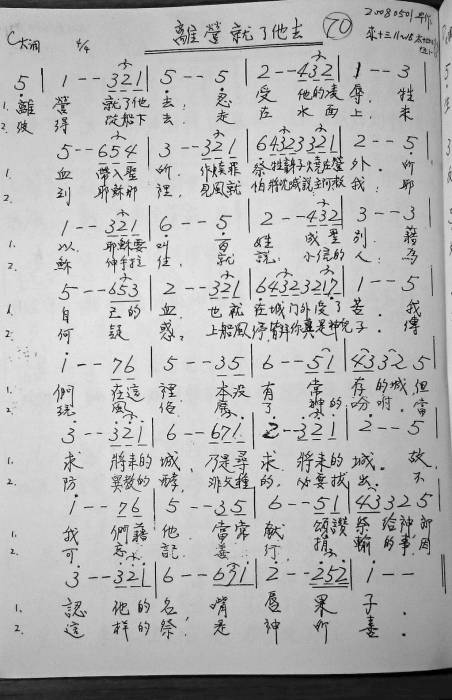 離營就了他去 70
20080501
來十三11~16
C大调 4/4
5 | 1 -- 321 | 5 -- 5 | 2 -- 432 | 1 -- 3
1. 離 營 就了他 去, 忍 受 他的凌 辱. 牲
2. 彼 得 從船下 去 走 在 水面 上, 來
5 -- 654 | 3 -- 321 | 64323321 | 2 -- 5
1. 血 帶入聖 所, 作贖罪 祭牲身子燒在營 外. 所
2. 到 耶穌那 裡, 見風就 怕將沉喊說主阿救 我. 耶
1 -- 321 | 6 -- 5 | 2 -- 432 | 3 -- 3
1. 以 耶穌要 叫 百 姓 成聖 别, 藉
2. 穌 伸手拉 住, 就 說: 小信的 人, 為
5 -- 653 | 2 -- 321 | 64323217 | 1 -- 5
1. 自 己的 血, 也就 在城門外受了 苦. 我
2. 何 疑 惑, 上船風停皆拜你真是神兒 子. 傳
1 -- 76 | 5 -- 35 | 6 -- 51 | 4332 5
1. 們 在這 裡 本沒 有 常 存的城, 但
2. 現 風俗 廢了 神的 吩咐, 當
3 -- 321 | 6 -- 671 | 2 -- 321 | 2 -- 5
1. 求 將來的 城, 乃是尋 求 將來的 城. 故
2. 防 異教的 酵, 非父種 的, 必要拔 出. 不
1 -- 76 | 5 -- 35 | 6 -- 51 | 4332 5
1. 我 們藉 他, 當常 献 頌讚 祭給神, 即
2. 可 忘 記 善行 捐輸的事, 因
3 -- 321 | 6 -- 671 | 2 -- 252 | 1 --
1. 認 他的 名 嘴 唇 果 子.
2. 這 樣的 祭, 是 神 所 喜.